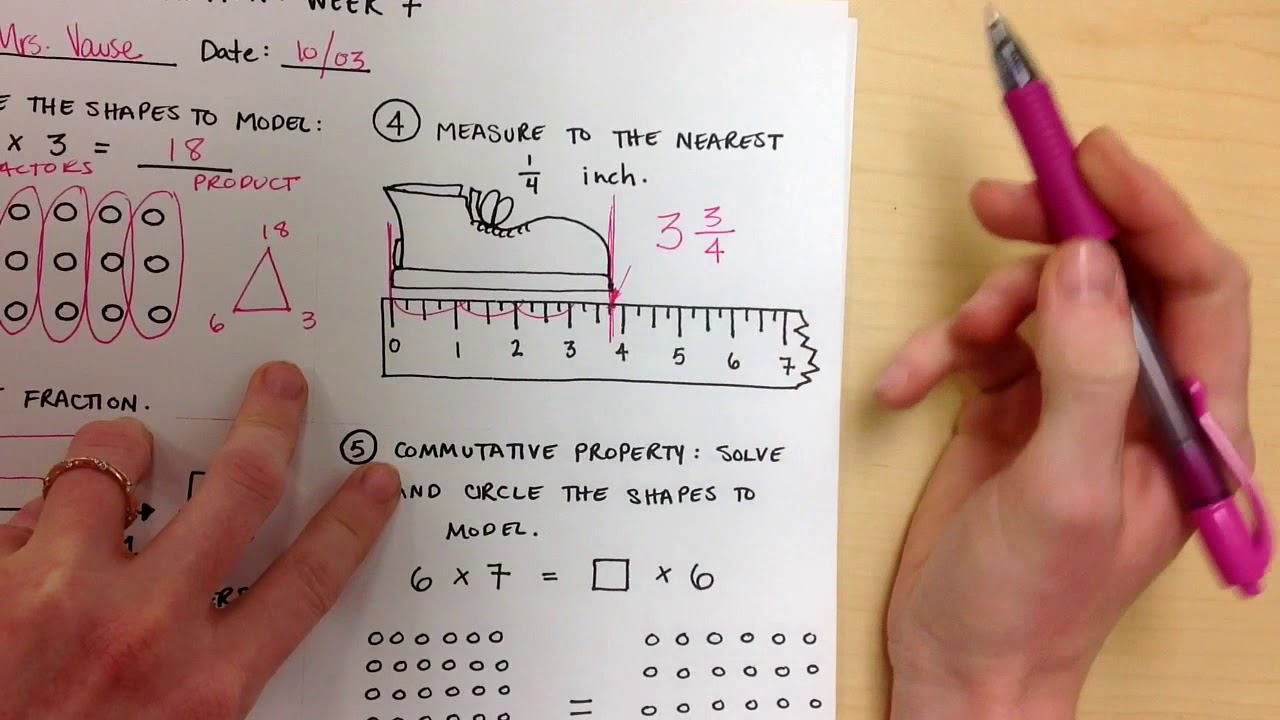 WEEK
Mrs. Vause Date: 10/03
THE SHAPES TO MODEL:
x 3 = 18
PRODUCT
18
6 3
FRACTION.
④ MEASURE TO THE NEAREST
1/4 inch.
3 3/4
0 1 2 3 4 5 6 7
⑤ COMMUTATIVE PROPERTY: SOLVE
AND CIRCLE THE SHAPES TO
MODEL.
6 x 7 = □ x 6
=